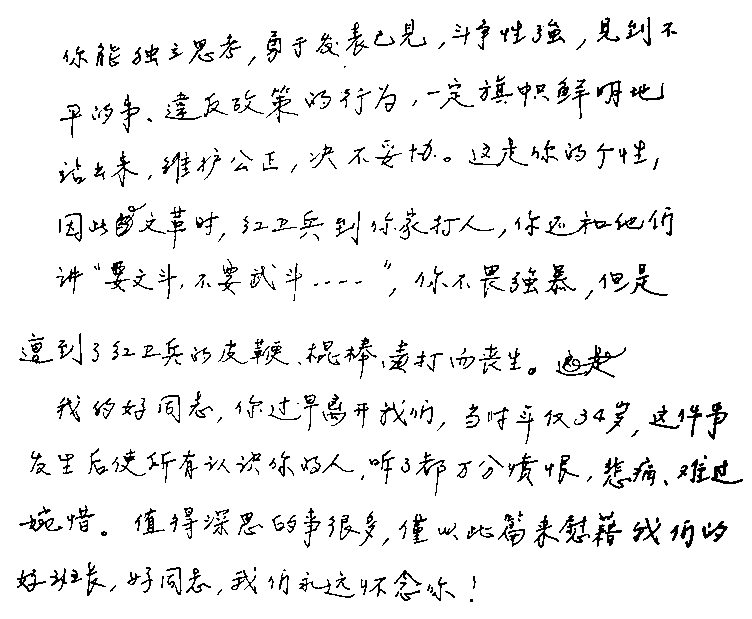 你能独立思考，勇于发表已见，斗争性強，見到不
平的事、違反政策的行为，一定旗帜鲜明地
站出来，维护公正，决不妥协。这是你的个性，
因此文革时，红卫兵到你家打人，你还和他们
讲“要文斗.不要武斗....”，你不畏強暴，但是
遭到了红卫兵的皮鞭、棍棒、毒打而丧生。
我的好同志，你过早离开我们，当时年仅34岁，这件事
发生后使所有认识你的人，听了都万分愤恨，悲痛、难过
婉惜。值得深思的事很多，僅以此篇来慰藉我们的
好班长，好同志，我们永远怀念你！